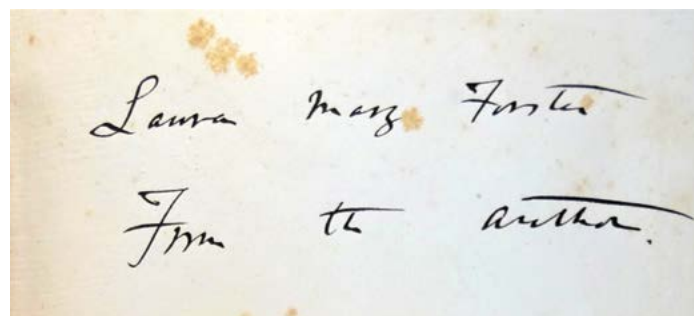 Laura Mary Forster
From the author.